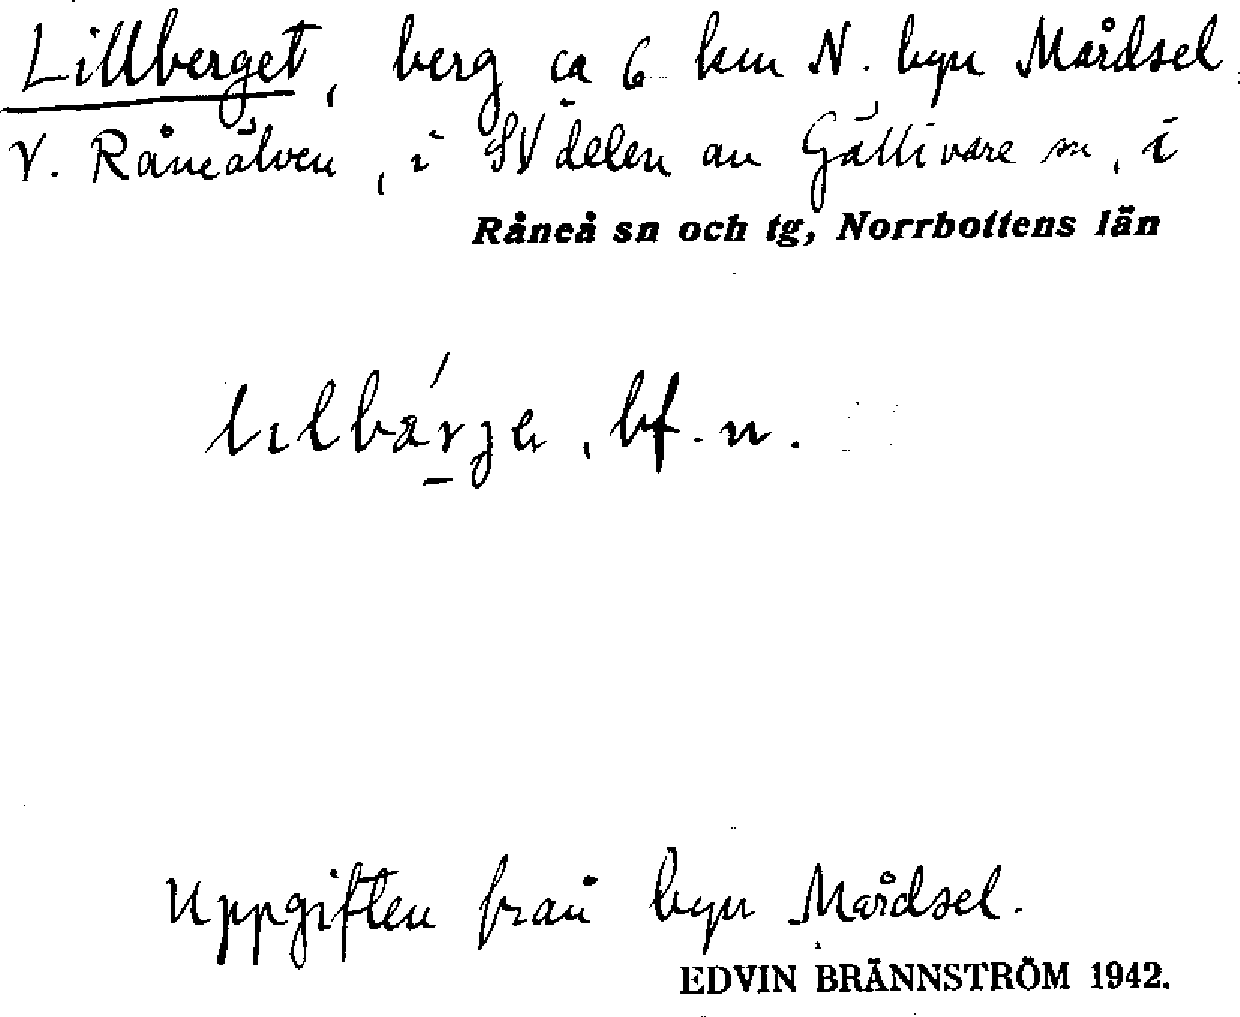 Lillberget, berg ca 6 km N. byn Mårdsel
V. Råneälven, i SV delen av Gällivare sn, i
Råneå sn och tg, Norrbottens län
bf. n.
Uppgiften från byn Mårdsel.
EDVIN BRÄNNSTRÖM 1942.